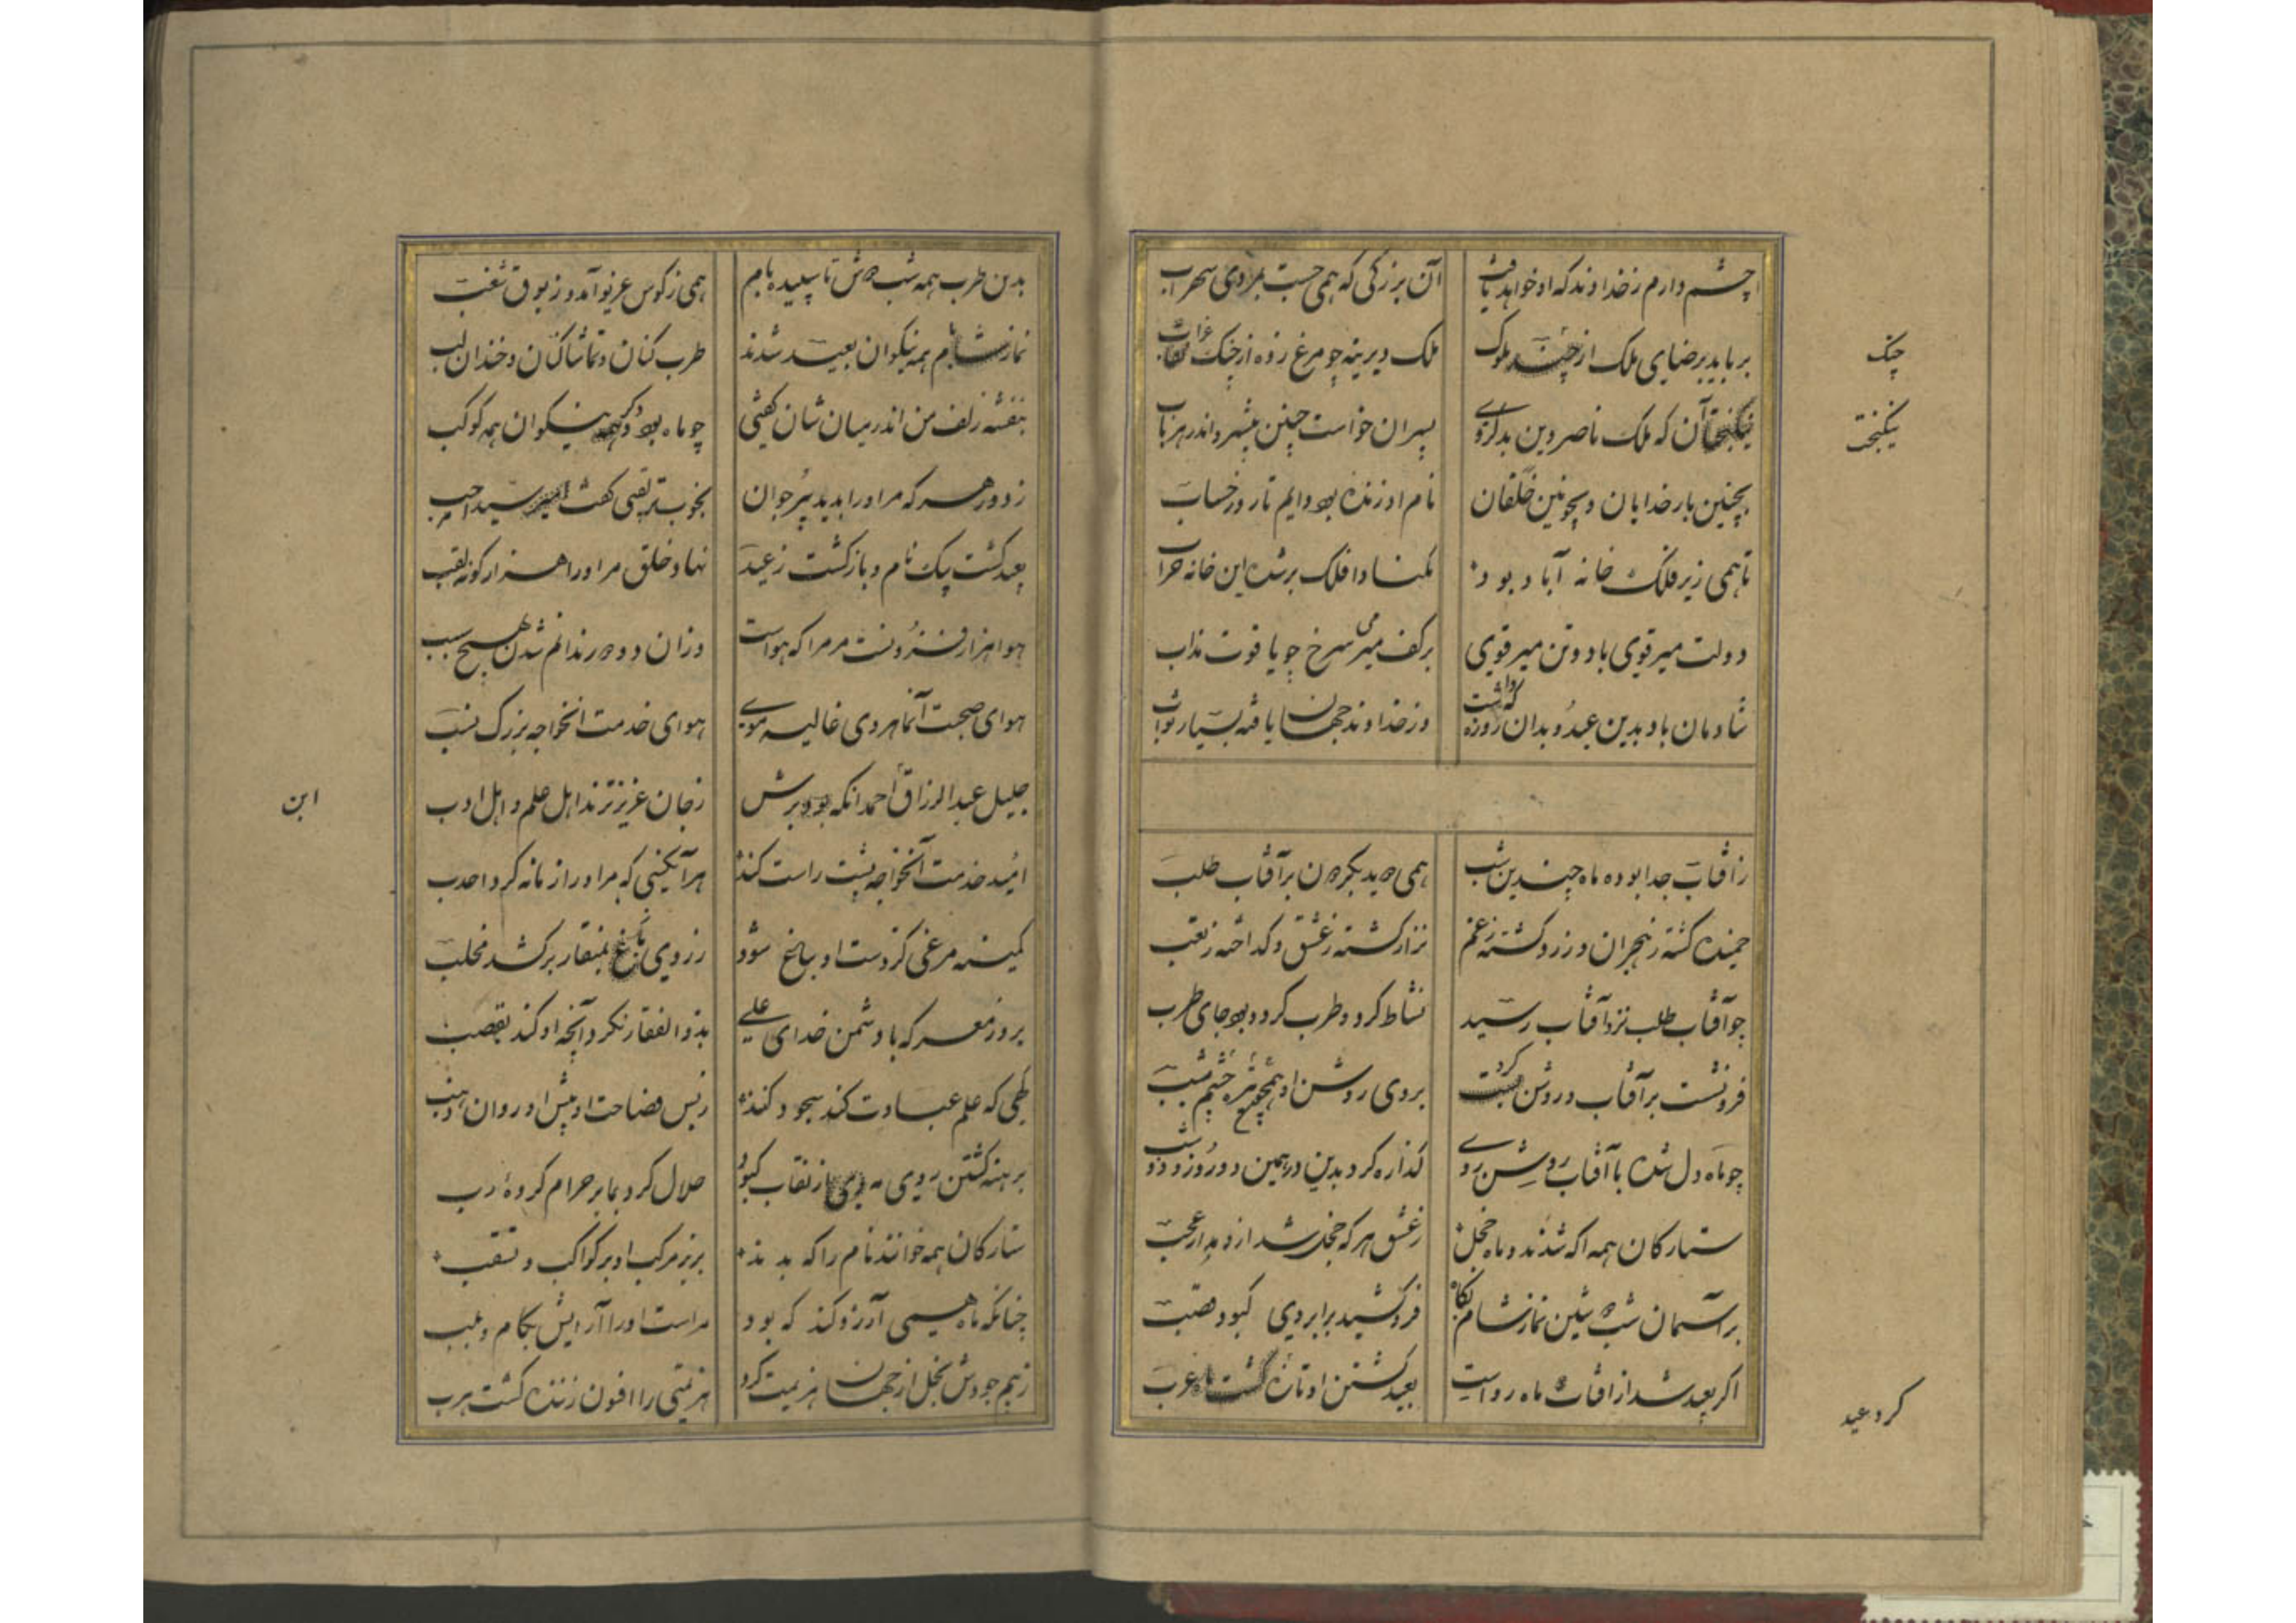 چشم دارم زخداوند که او خواهد یافت آن بزرگی که همی جست بمردی سهراب
برباید برضای ملک از چنگ ملوک ملک دیرینه چو مرغ زده از چنگ عقاب
چنگ
نیکبخت آن که ملک ناصر دین بدکروی پسران خواست چنین بیشرو اندر هر باب
نیکبخت
بچنین بار خدایان و بچونین خلقان نام او زنده بود دایم تا روز حساب
تا همی زیر فلک خانه آباد بود مکناد افلک برشده این خانه خراب
دولت میر قوی باد و تن میر قوی برکف میر می سرخ چو یاقوت مذاب
شادمان باد بدین عید و بدان روزه که داشت وز خداوند جهان یافته بسیار ثواب
زآفتاب جدا بوده ماه چندین شب همی دوید بگردون بر آفتاب طلب
خمیده کشته زهجران و زرد کشته زغم نزار کشته زعشق و کداخته زتعب
چو آفتاب طلب نزد آفتاب رسید نشاط کرد و طرب کرد و بود جای طرب
فرو نشست بر آفتاب و روشن کرد بروی روشن او همچو تیره چشم شب
چو ماه دل شده با آفتاب روشن روی کذاره کرد بدین در همین دو روز و دو شب
ستارکان همه اکه شدند و ماه خجل زعشق هرکه خجل شد ازو مدار عجب
بر آسمان شب دوشین نماز شام بگاه فرو کشید برابروی کبود قصب
اکر بعید شد از آفتاب ماه رواست بعید کشتن او تازه کشت ماه عرب
کرد عید
بدین طرب همه شب دوش تا سپیده بام همی زکوس غریو آمد و زبوق شغب
نماز شام همه نیکوان بعید شدند طرب کنان و تماشا کنان و خندان لب
بنفشه زلف من اندر میان شان کفتی چو ماه بود و دکر نیکوان همه کوکب
ز دور هرکه مر او را بدید پیر و جوان بخوب تر لقبی کفت سیدا مرحب
بعید کشت بیک نام و بازکشت زعید نهاد خلق مر او را هزار کونه لقب
هوا هزار فزونست مر مرا که هواست وزان دو دور ندانم شدن بهیچ سبب
هوای صحبت آنماهروی غالیه موی هوای خدمت آنخواجه بزرک نسب
جلیل عبدالرزاق احمد انکه بود برش زجان عزیزترند اهل علم و اهل ادب
ابن
امید خدمت آنخواجه پشت راست کند هر آنکسی که مر او را زمانه کرد احدب
کمینه مرغی کز دست او بباغ شود ز روی باغ بمنقار برکشد مخلب
بروز معرکه با دشمن خدای علی بذوالفقار نکرد آنچه او کند بقصب
کهی که علم عبادت کند سجود کند زبس فصاحت او پیش او روان وهب
برهنه کشتن روی مه از نقاب کبود حلال کرد بما بر حرام کرده رب
ستارکان همه خوانند نام را که بدند بریز مرکب او بر کواکب و تقب
چنانکه ماه همی آرزو کند که بود مر اسب او را آرایش لکام و لبب
زبیم جودش بخل از جهان هزیمت کرد هزیمتی را افون زننده کشت هرب